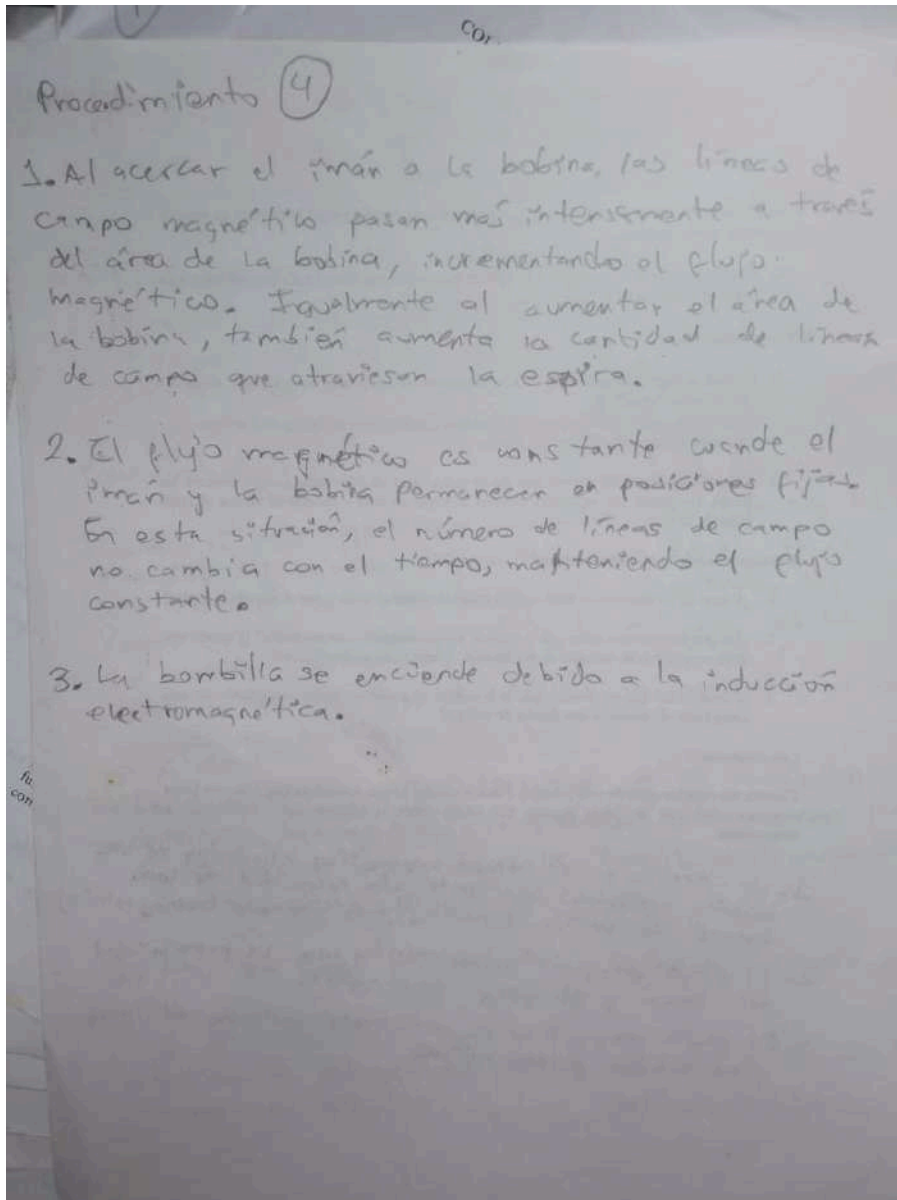 Con
Procedimiento 4
1. Al acercar el imán a la bobina, las líneas de
campo magnético pasan más intensamente a través
del área de la bobina, incrementando el flujo
magnético. Igualmente al aumentar el área de
la bobina, también aumenta la cantidad de líneas
de campo que atraviesan la espira.
2. El flujo magnético es constante cuando el
imán y la bobina permanecen en posiciones fijas.
En esta situación, el número de líneas de campo
no cambia con el tiempo, manteniendo el flujo
constante.
3. La bombilla se enciende debido a la inducción
electromagnética.
fu
con